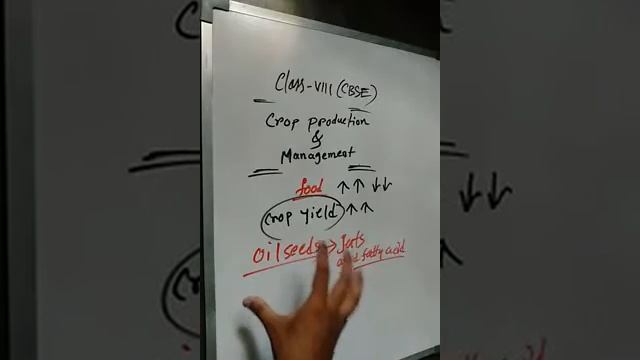 Class-VIII (CBSE)
Crop production
&
Management
food ↑ ↑ ↓↓
crop yield ↑ ↑
oilseeds → fats
and fatty acid